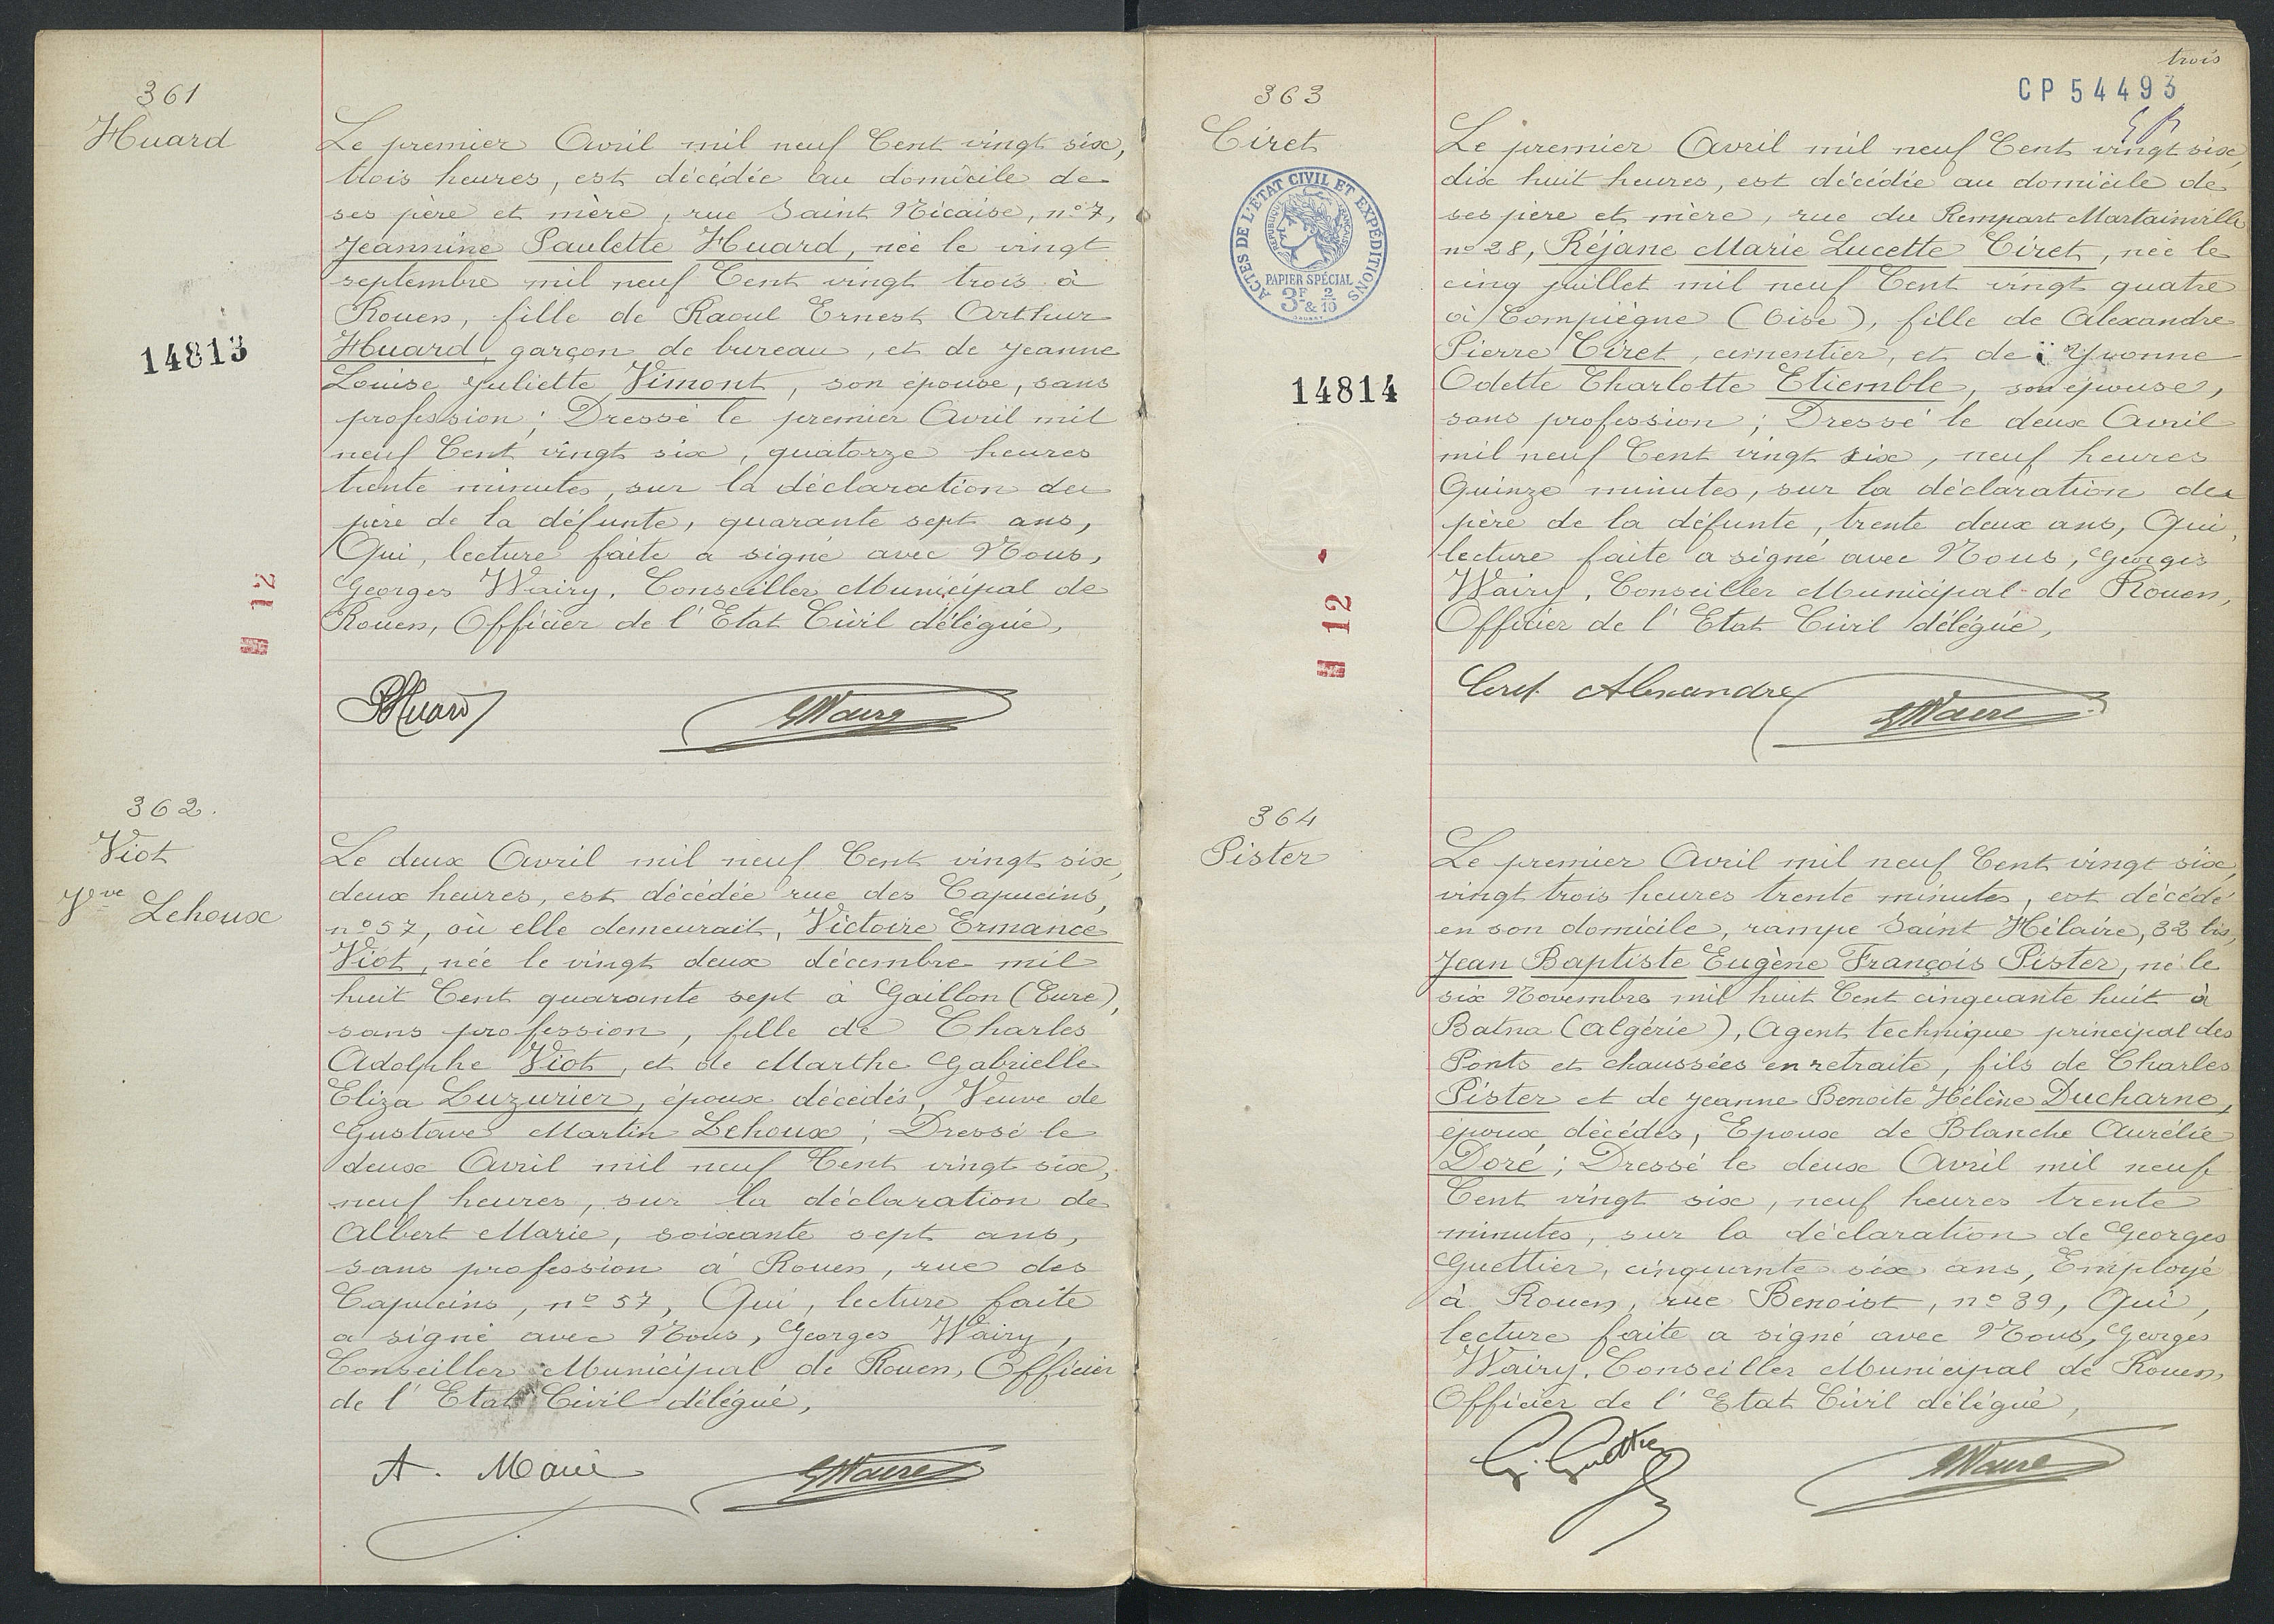 361
Huard
Le premier Avril mil neuf Cent vingt six,
trois heures, est décédée au domicile de
ses père et mère, rue Saint Nicaise, n° 7,
Jeannine Paulette Huard, née le vingt
septembre mil neuf Cent vingt trois à
Rouen, fille de Raoul Ernest Arthur
Huard, garçon de bureau, et de Jeanne
Louise Juliette Vimont, son épouse, sans
profession; Dressé le premier Avril mil
neuf Cent vingt six, quatorze heures
trente minutes, sur la déclaration du
père de la défunte, quarante sept ans,
Qui, lecture faite a signé avec Nous,
Georges Wairy, Conseiller Municipal de
Rouen, Officier de l'Etat Civil délégué,
14813
12
RHuard
GWairy
362.
Viot
Vve Lehoux
Le deux Avril mil neuf Cent vingt six,
deux heures, est décédée rue des Capucins,
n° 57, où elle demeurait, Victoire Ermance
Viot, née le vingt deux décembre mil
huit Cent quarante sept à Gaillon (Eure),
sans profession, fille de Charles
Adolphe Viot, et de Marthe Gabrielle
Eliza Luzurier, époux décédés, Veuve de
Gustave Martin Lehoux; Dressé le
deux Avril mil neuf Cent vingt six,
neuf heures, sur la déclaration de
Albert Marie, soixante sept ans,
sans profession à Rouen, rue des
Capucins, n° 57, Qui, lecture faite
a signé avec Nous, Georges Wairy,
Conseiller Municipal de Rouen, Officier
de l'Etat Civil délégué,
A. Marie
GWairy
trois
CP 54493
363
Ciret
ACTES DE L'ETAT CIVIL ET EXPÉDITIONS
REPUBLIQUE FRANÇAISE
PAPIER SPÉCIAL
3F & 2/10
14814
12
Le premier Avril mil neuf Cent vingt six,
dix huit heures, est décédée au domicile de
ses père et mère, rue du Rempart Martainville
n° 28, Réjane Marie Lucette Ciret, née le
cinq juillet mil neuf Cent vingt quatre
à Compiègne (Oise), fille de Alexandre
Pierre Ciret, cimentier, et de Yvonne
Odette Charlotte Etiemble, son épouse,
sans profession; Dressé le deux Avril
mil neuf Cent vingt six, neuf heures
Quinze minutes, sur la déclaration du
père de la défunte, trente deux ans, Qui,
lecture faite a signé avec Nous, Georges
Wairy, Conseiller Municipal de Rouen,
Officier de l'Etat Civil délégué,
Ciret Alexandre
GWairy
364
Pister
Le premier Avril mil neuf Cent vingt six,
vingt trois heures trente minutes, est décédé
en son domicile, rampe Saint Hilaire, 32 bis,
Jean Baptiste Eugène François Pister, né le
six Novembre mil huit Cent cinquante huit à
Batna (Algérie), Agent technique principal des
Ponts et chaussées en retraite, fils de Charles
Pister et de Jeanne Benoite Hélène Ducharne,
époux décédés, Epoux de Blanche Aurélie
Doré; Dressé le deux Avril mil neuf
Cent vingt six, neuf heures trente
minutes, sur la déclaration de Georges
Guettier, cinquante six ans, Employé
à Rouen, rue Benoist, n° 39, Qui,
lecture faite a signé avec Nous, Georges
Wairy, Conseiller Municipal de Rouen,
Officier de l'Etat Civil délégué,
G. Guettier
GWairy